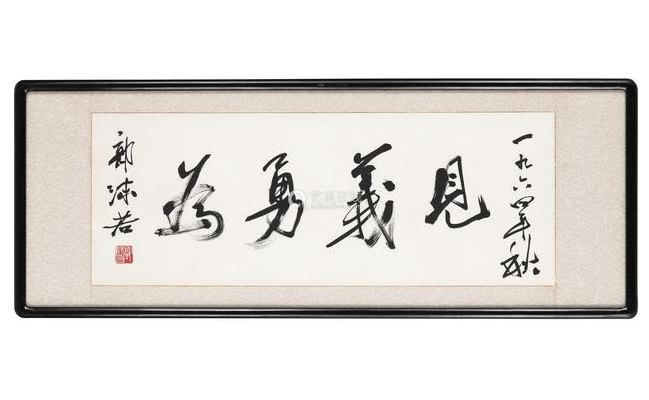 一九六四年秋
見義勇為
郭沫若